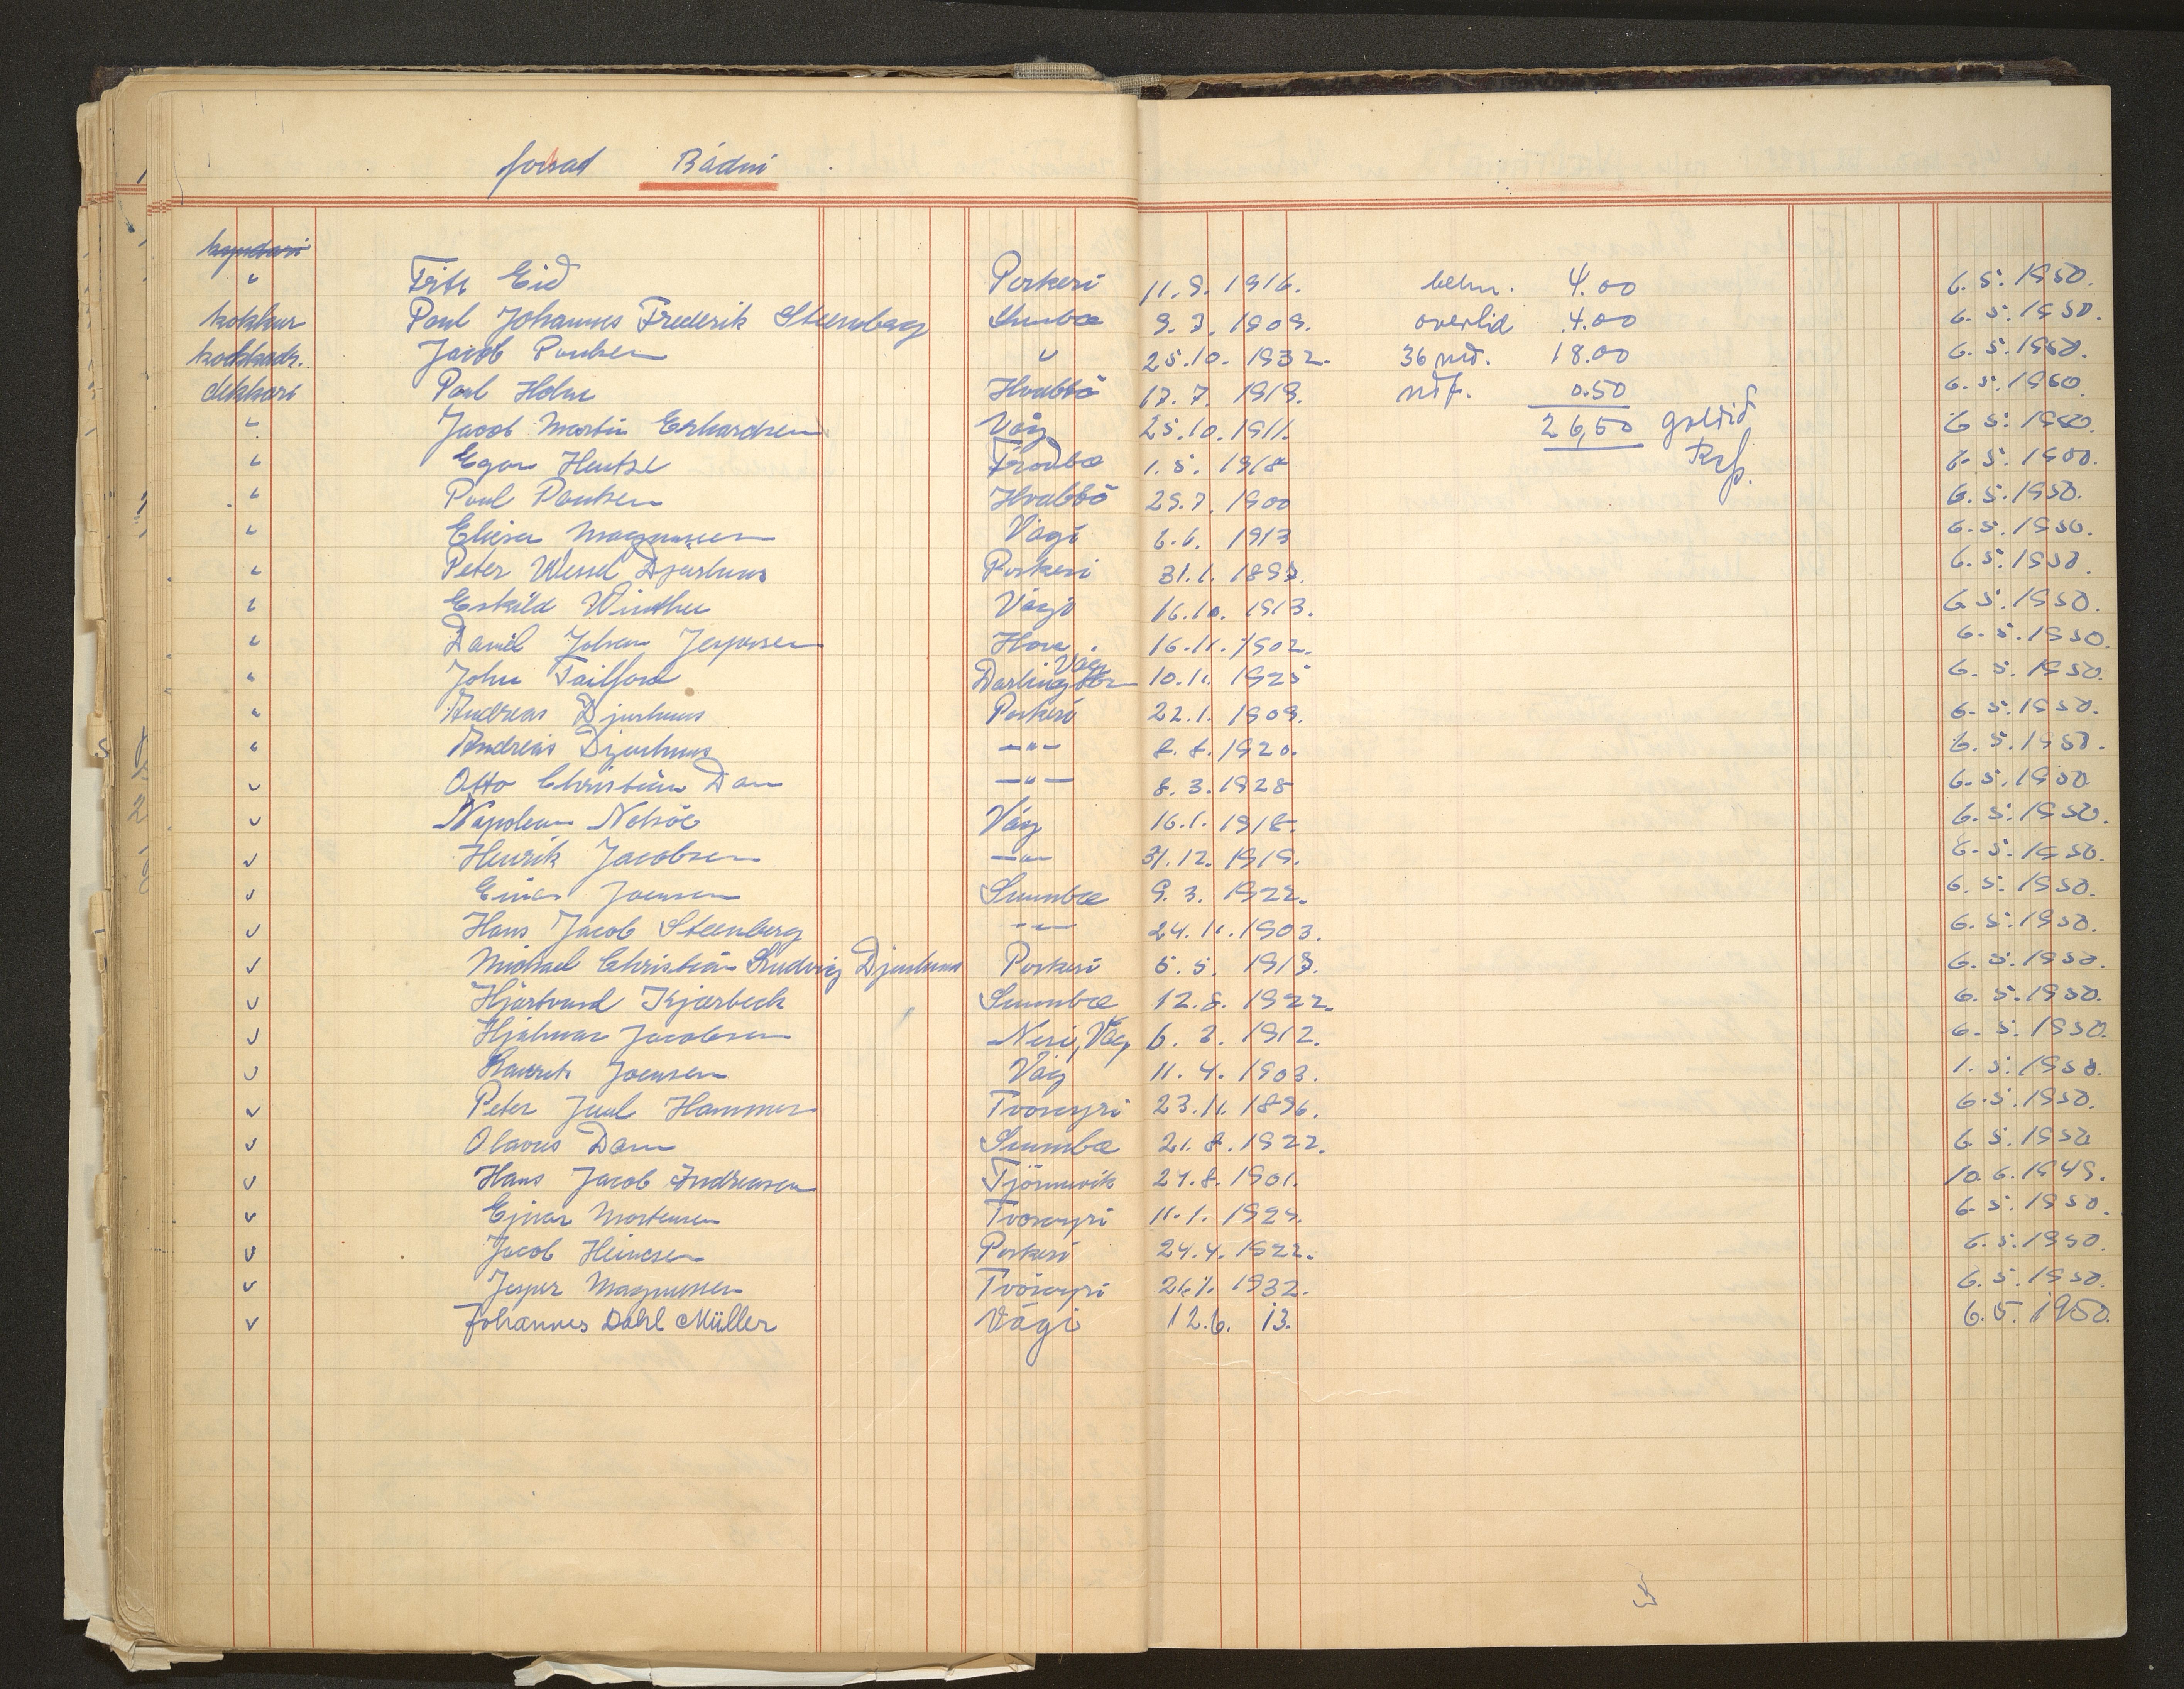 forsad Bádni
kyndari
" Fritz Eid Porkeri 11.9. 1916. behn. 4.00 6.5.1950.
kokkur Poul Johannes Frederik Steenberg Sumbø 9.7.1909. overlid 4.00 6.5.1950.
Jacob Poulsen " 25.10.1932. 36 md. 18.00 6.5.1950.
dekkari Poul Holm Hvalbö 17.7.1919. 0.50 6.5.1950.
" Jacob Martin Erhardsen Våg 25.10.1911. 26,50 goldid 6.5.1950.
" Egon Hentze Frodbø 1.5.1918 6.5.1950.
" Poul Poulsen Hvalbö 29.7.1900 6.5.1950.
" Elieser Magnussen Vági 6.6.1913 6.5.1950.
" Peter Wessel Djurhuus Porkeri 31.1.1893. 6.5.1950.
" Eskild Winther Vági 16.10.1913. 6.5.1950.
" Daniel Johan Jespersen Hove 16.11.1902. 6.5.1950.
" John Tailford Darlington Våg 10.11.1925 6.5.1950.
" Andreas Djurhuus Porkeri 22.1.1909. 6.5.1950.
" Andreas Djurhuus -"- 8.8.1920. 6.5.1950.
" Otto Christian Dam -"- 8.3.1928 6.5.1950
" Napoleon Nolsöe Våg 16.1.1918. 6.5.1950.
" Henrik Jacobsen -"- 31.12.1919. 6.5.1950.
" Einar Joensen Sumbø 9.3.1922. 6.5.1950.
" Hans Jacob Steenberg -"- 24.11.1903. 6.5.1950.
" Michael Christian Ludvig Djurhuus Porkeri 5.5.1913. 6.5.1950.
" Hjartvard Kjærbech Sumbø 12.8.1922. 6.5.1950.
" Hjalmar Jacobsen Nesi, Våg 6.3.1912. 6.5.1950.
" Laurits Joensen Våg 11.4.1903. 1.5.1950.
" Peter Juul Hammer Tvöroyri 23.11.1896. 6.5.1950.
" Olavus Dam Sumbø 21.8.1922. 6.5.1950
" Hans Jacob Andreasen Tjörnuvik 24.8.1901. 10.6.1949.
" Ejnar Mortensen Tvöroyri 11.1.1929. 6.5.1950.
" Jacob Heinesen Porkeri 24.4.1922. 6.5.1950.
" Jesper Magnussen Tvöroyri 26.1.1932. 6.5.1950.
" Johannes Dahl Müller Vági 12.6. 13. 6.5.1950.